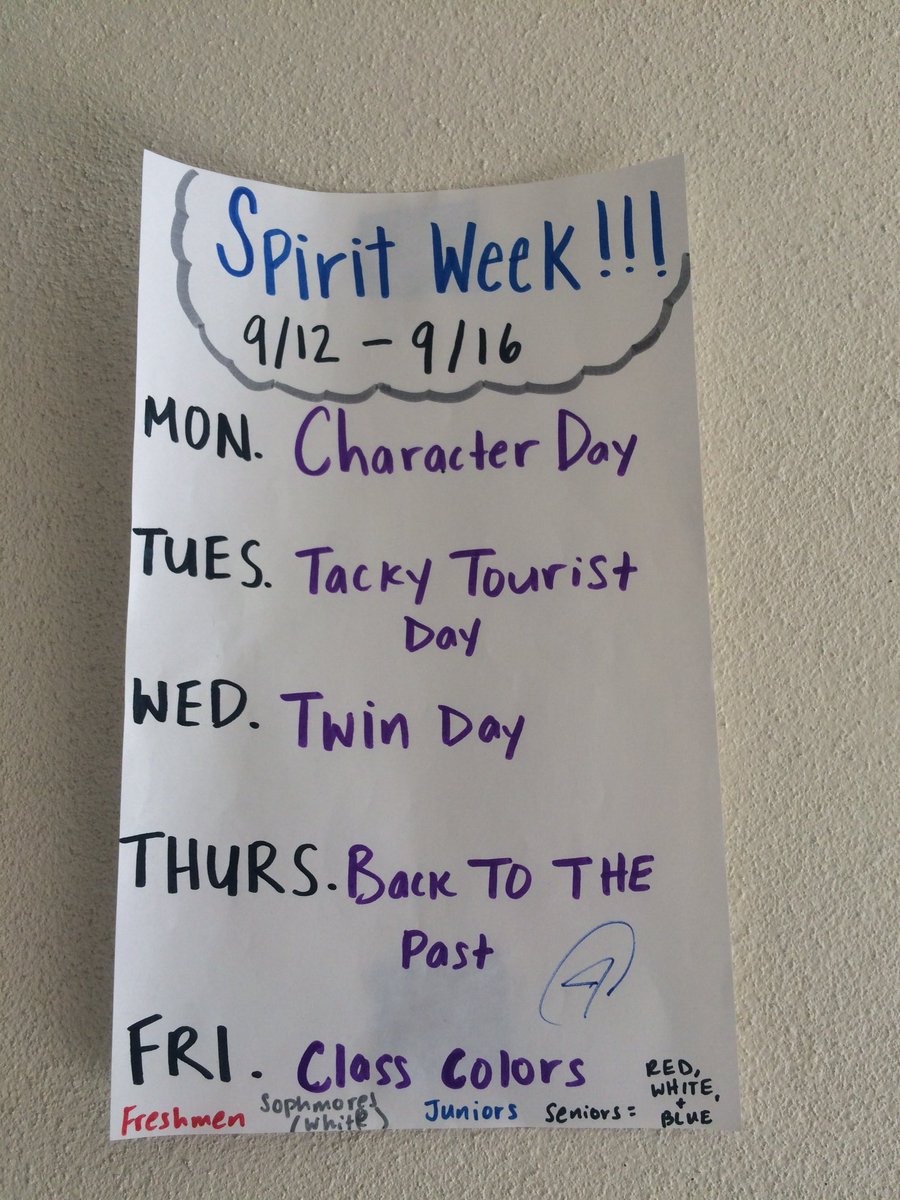 Spirit Week!!!
9/12 - 9/16
MON. Character Day
TUES. Tacky Tourist
Day
WED. Twin Day
THURS. Back TO THE
Past
FRI. Class Colors
Freshmen Sophmores Juniors Seniors: RED,
(White) WHITE,
+
BLUE